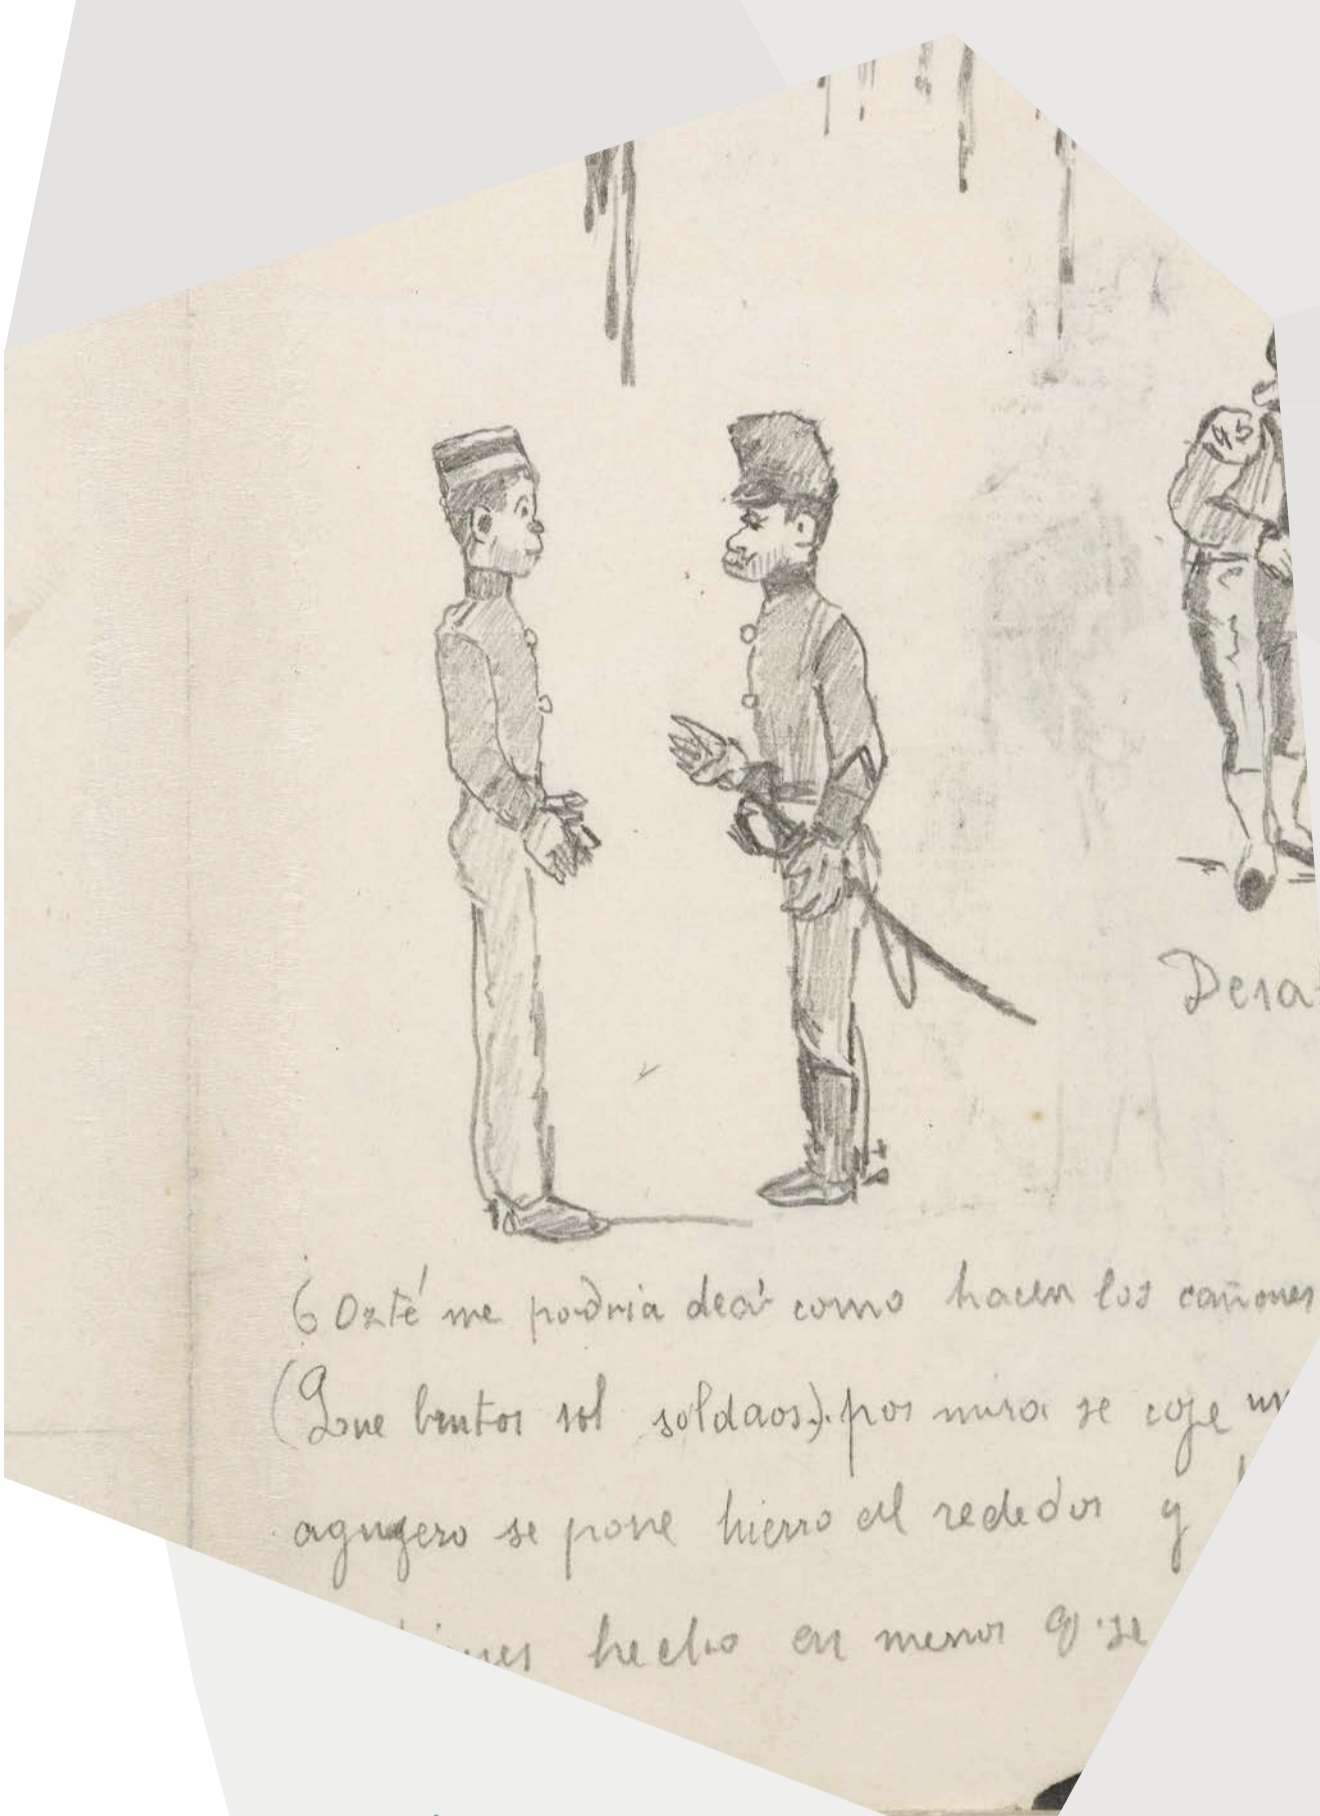 45
Desa
¿Ozté me podria decí como hacen los cañones
(Que brutos sol soldaos). pos mira se coje un
agugero se pone hierro al rededor y
hecho en menos q. se